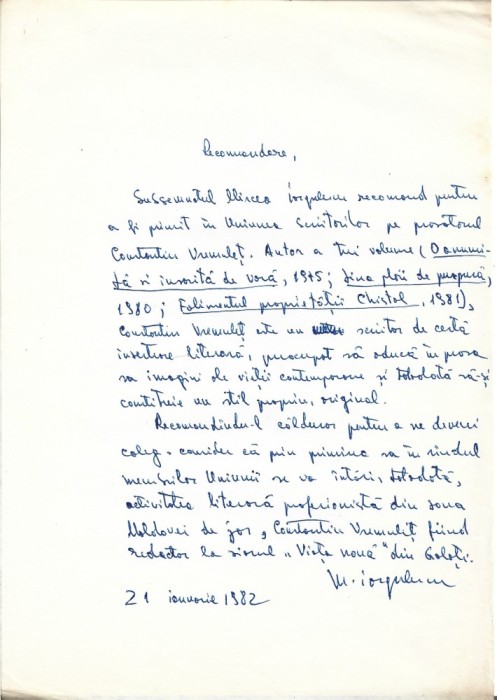 Recomandare,
Subsemnatul Mircea Iorgulescu recomand pentru
a fi primit în Uniunea Scriitorilor pe prozatorul
Constantin Vremuleț. Autor a trei volume (O anumi-
tă zi însorită de vară, 1975; Ziua ploii de
1980; Falimentul proprietății Chistol, 1981),
Constantin Vremuleț este un scriitor de certă
inserție literară, preocupat să aducă în proza
sa imagini ale vieții contemporane și totodată să-și
contituie un stil propriu, original.
Recomandîndu-l călduros pentru a ne deveni
coleg, consider că prin primirea sa în rîndul
membrilor Uniunii se va întări, totodată,
activitatea literară profesionistă din zona
Moldovei de jos, Constantin Vremuleț fiind
redactor la ziarul „Viața nouă" din Galați.
M. Iorgulescu
21 ianuarie 1982